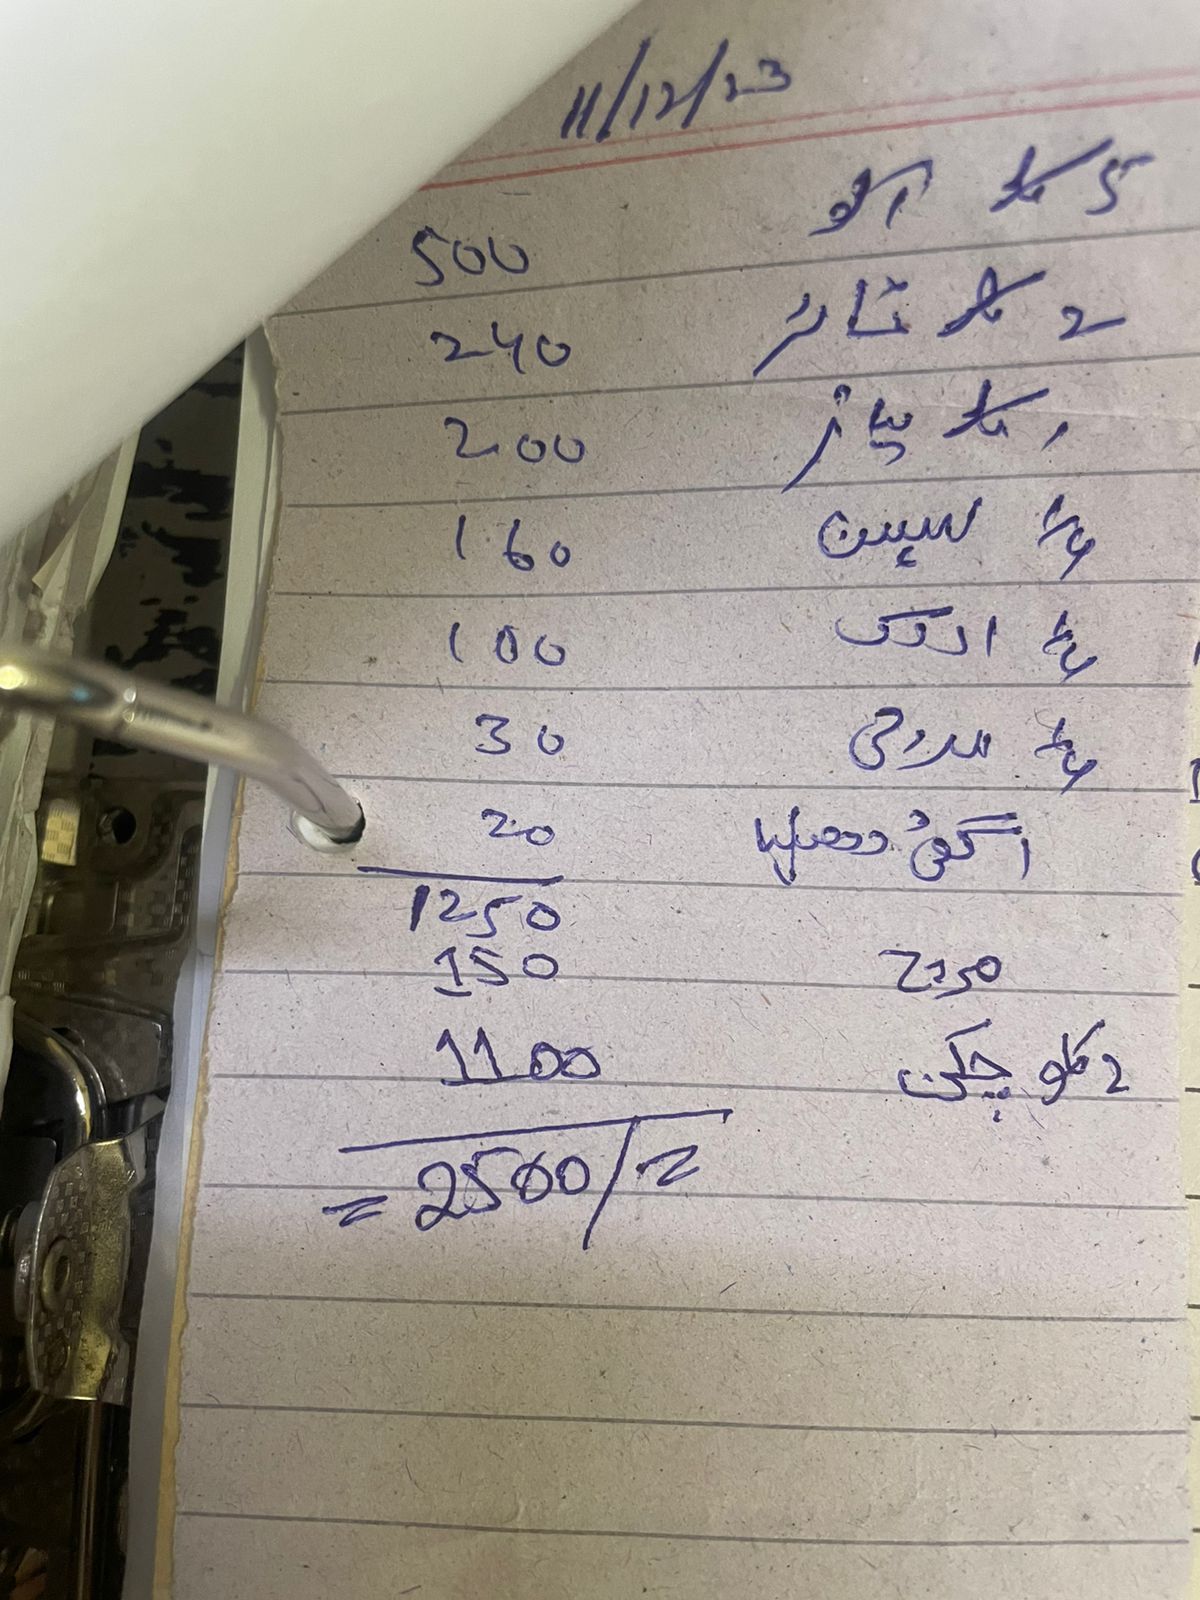 11/12/23
5 کلو آلو 500
2 کلو ٹماٹر 240
1 کلو پیاز 200
لہسن 160
ادرک 100
30
دھنیا 20
1250
مرچ 150
2 کلو چکن 1100
= 2500/=